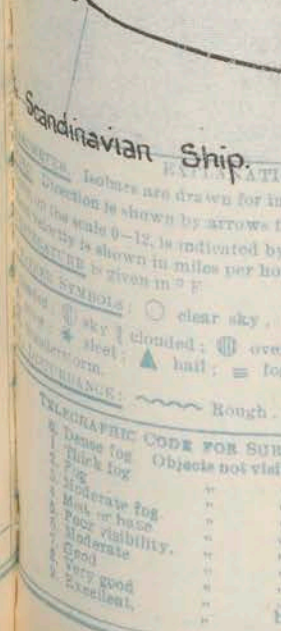 Scandinavian Ship.
EXPLANATI
Isobars are drawn for in
Direction is shown by arrows f
the scale 0–12, is indicated by
is shown in miles per ho
is given in ° F
SYMBOLS: clear sky,
sky ¾ clouded; over
sleet; hail; fo
Rough.
TELEGRAPHIC CODE FOR SUR
0. Dense fog Objects not visi
1. Thick fog " "
2. Fog " "
3. Moderate fog " "
4. Mist or haze " "
5. Poor visibility. " "
6. Moderate " "
7. Good " "
8. Very good " "
9. Excellent.